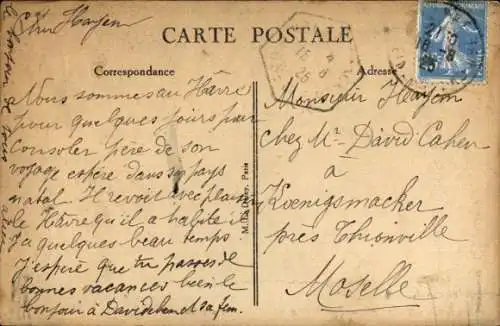 Cher Hayem
CARTE POSTALE
Correspondance
Adresse
Nous sommes au Hâvre
pour quelques jours pour
consoler père de son
voyage espéré dans son pays
natal. Il revoit avec plaisir
le Hâvre qu'il a habité il
y a quelques beau temps
J'espère que tu passes de
bonnes vacances bien le
bonjour à David et sa fem.
Monsieur Hayem
chez Mr David Cahen
à
Kœnigsmacker
près Thionville
Moselle
Paris